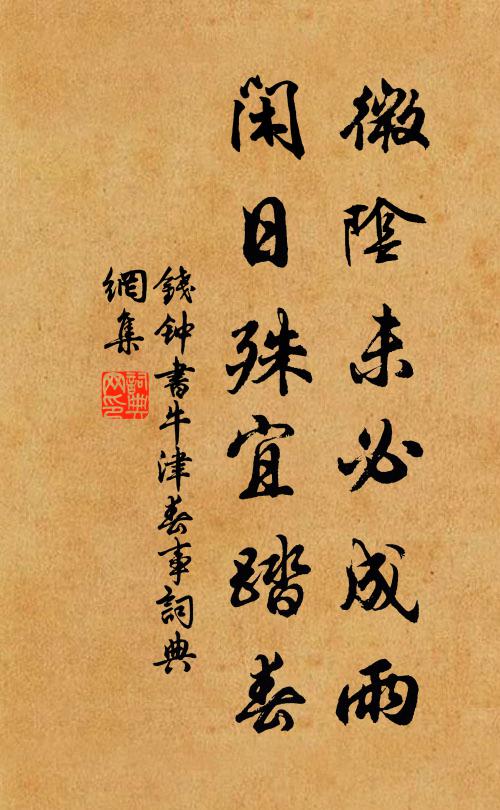 微陰未必成雨
閑日殊宜踏春
錢钟書牛津春事詞典
網集
詞典
网印